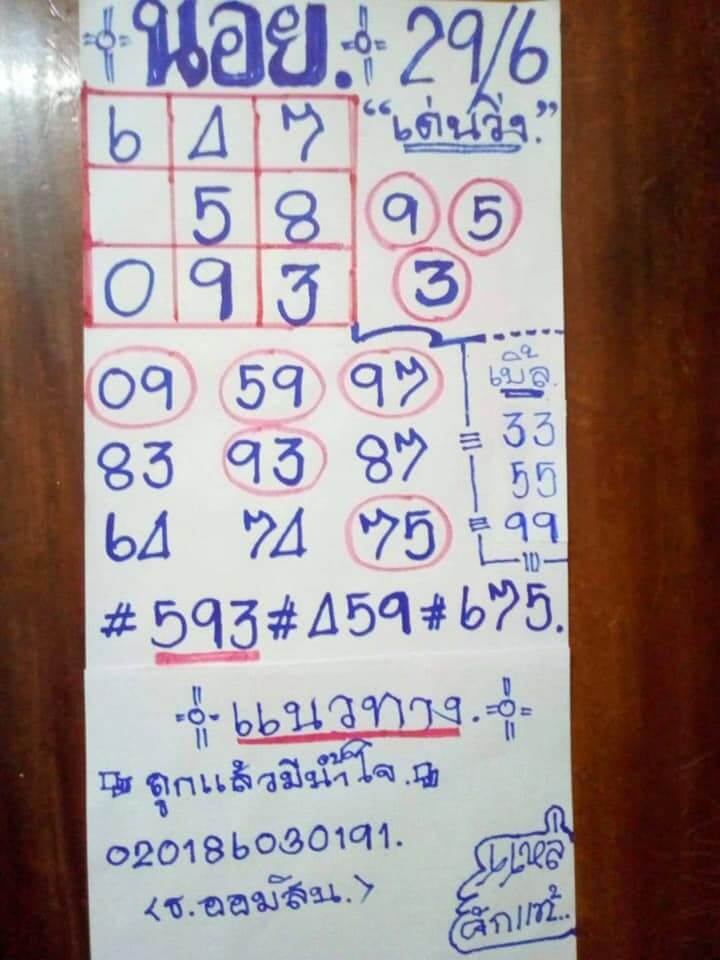 น้อย. 29/6
6 4 7
"เด่นวิ่ง."
5 8
9 5
0 9 3
3
09 59 97
เบิ้ล.
83 93 87
33
55
64 74 75
99
#593#459#675.
แนวทาง.
ถูกแล้วมีน้ำใจ.
020186030191.
<ธ.ออมสิน.>